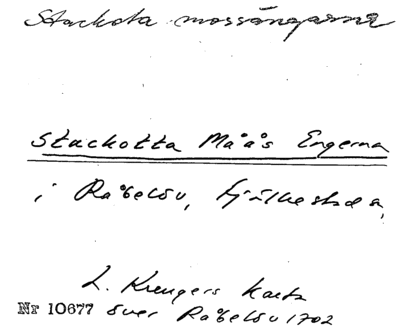 Stackota mossängarna
Stackotta Måås Engerna
i Rabelöv, Fjälkestad s,
L. Kreugers karta
Nr 10677 över Rabelöv 1702